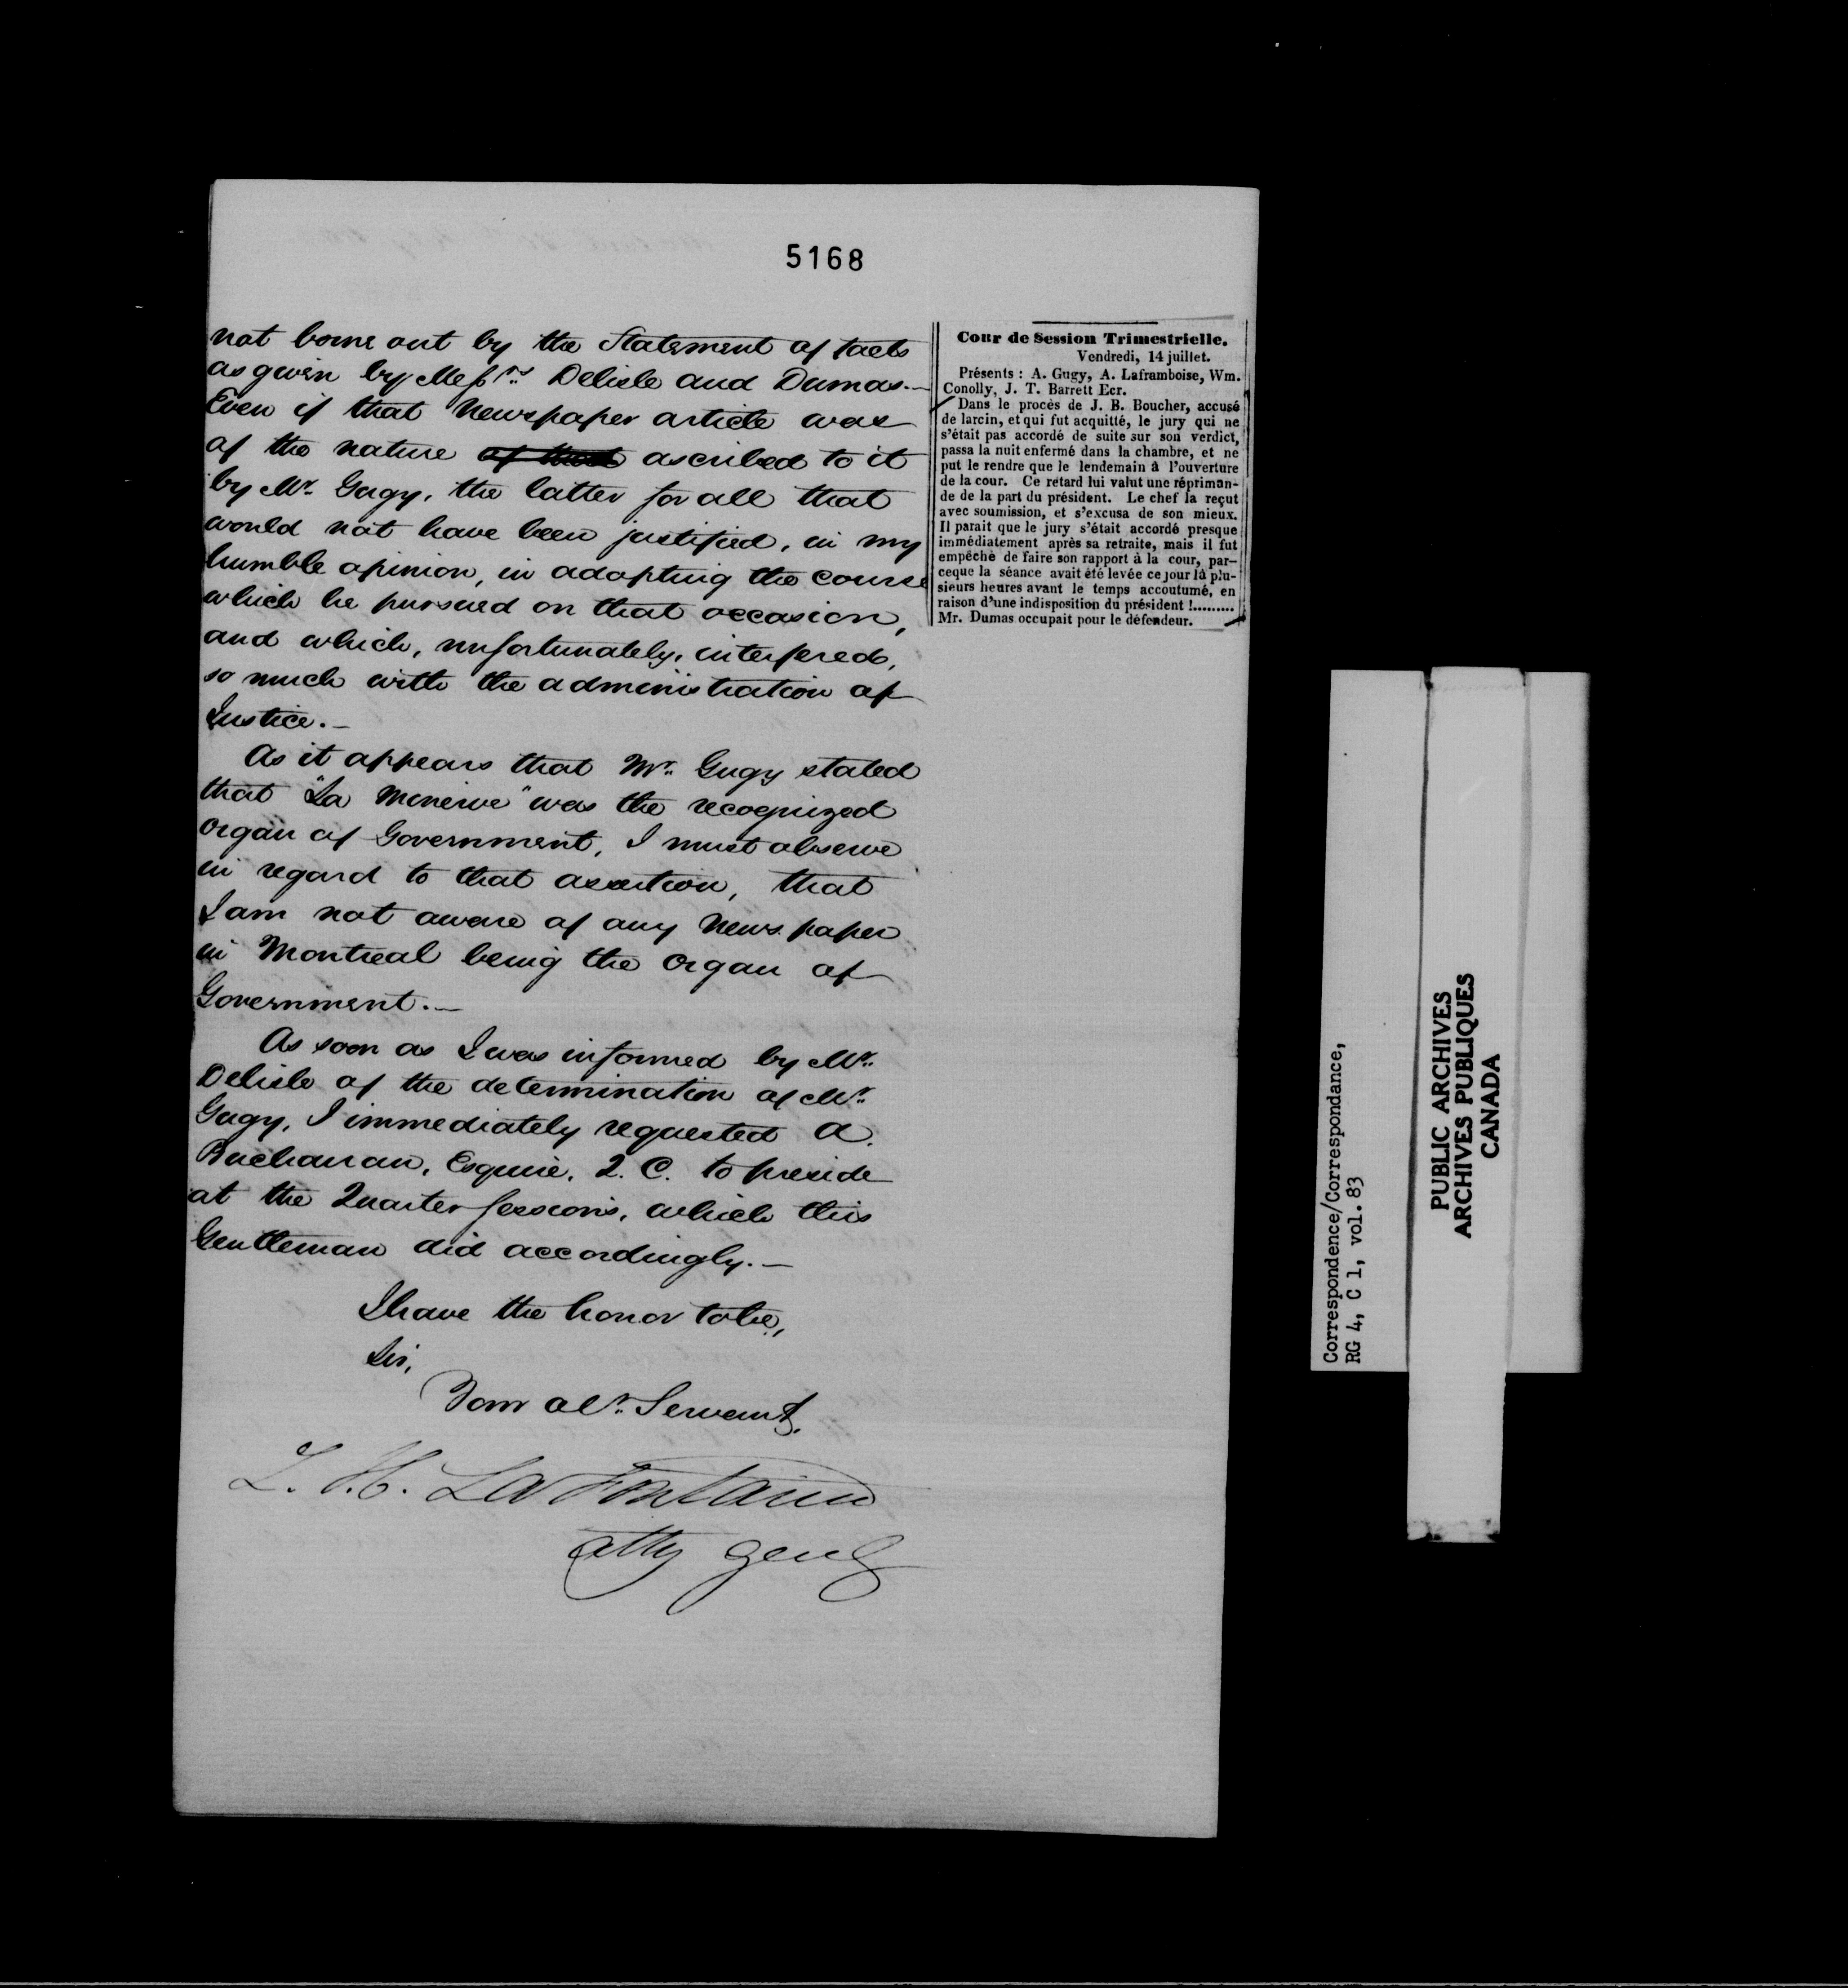 5168
not borne out by the Statement of facts
as given by Messrs. Delisle and Dumas.—
Even if that Newspaper article was
of the nature ascribed to it
by Mr. Gugy, the latter for all that
would not have been justified, in my
humble opinion, in adopting the course
which he pursued on that occasion,
and which, unfortunately, interfered,
so much with the administration of
Justice.—
As it appears that Mr. Gugy stated
that "La Minerve" was the recognized
organ of Government, I must observe
in regard to that assertion, that
I am not aware of any Newspaper
in Montreal being the organ of
Government.—
As soon as I was informed by Mr.
Delisle of the determination of Mr.
Gugy, I immediately requested A.
Buchanan, Esquire, Q. C. to preside
at the Quarter Sessions, which this
Gentleman did accordingly.—
I have the honor to be,
Sir,
Your obt. Servant.
L. H. LaFontaine
Atty Genl
Cour de Session Trimestrielle.
Vendredi, 14 juillet.
Présents : A. Gugy, A. Laframboise, Wm.
Conolly, J. T. Barrett Ecr.
Dans le procès de J. B. Boucher, accusé
de larcin, et qui fut acquitté, le jury qui ne
s'était pas accordé de suite sur son verdict,
passa la nuit enfermé dans la chambre, et ne
put le rendre que le lendemain à l'ouverture
de la cour. Ce retard lui valut une répriman-
de de la part du président. Le chef la reçut
avec soumission, et s'excusa de son mieux.
Il parait que le jury s'était accordé presque
immédiatement après sa retraite, mais il fut
empêchè de faire son rapport à la cour, par-
ceque la séance avait été levée ce jour là plu-
sieurs heures avant le temps accoutumé, en
raison d'une indisposition du président !.........
Mr. Dumas occupait pour le défendeur.
Correspondence/Correspondance,
RG 4, C 1, vol. 83
PUBLIC ARCHIVES
ARCHIVES PUBLIQUES
CANADA